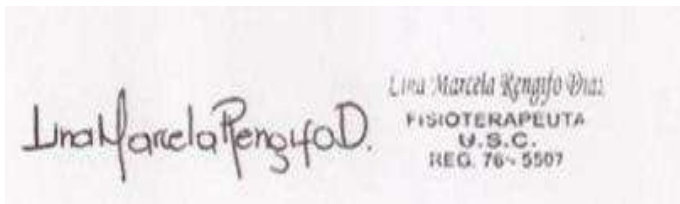 Lina Marcela Rengifo D.
Lina Marcela Rengifo Diaz
FISIOTERAPEUTA
U.S.C.
REG. 76-5507